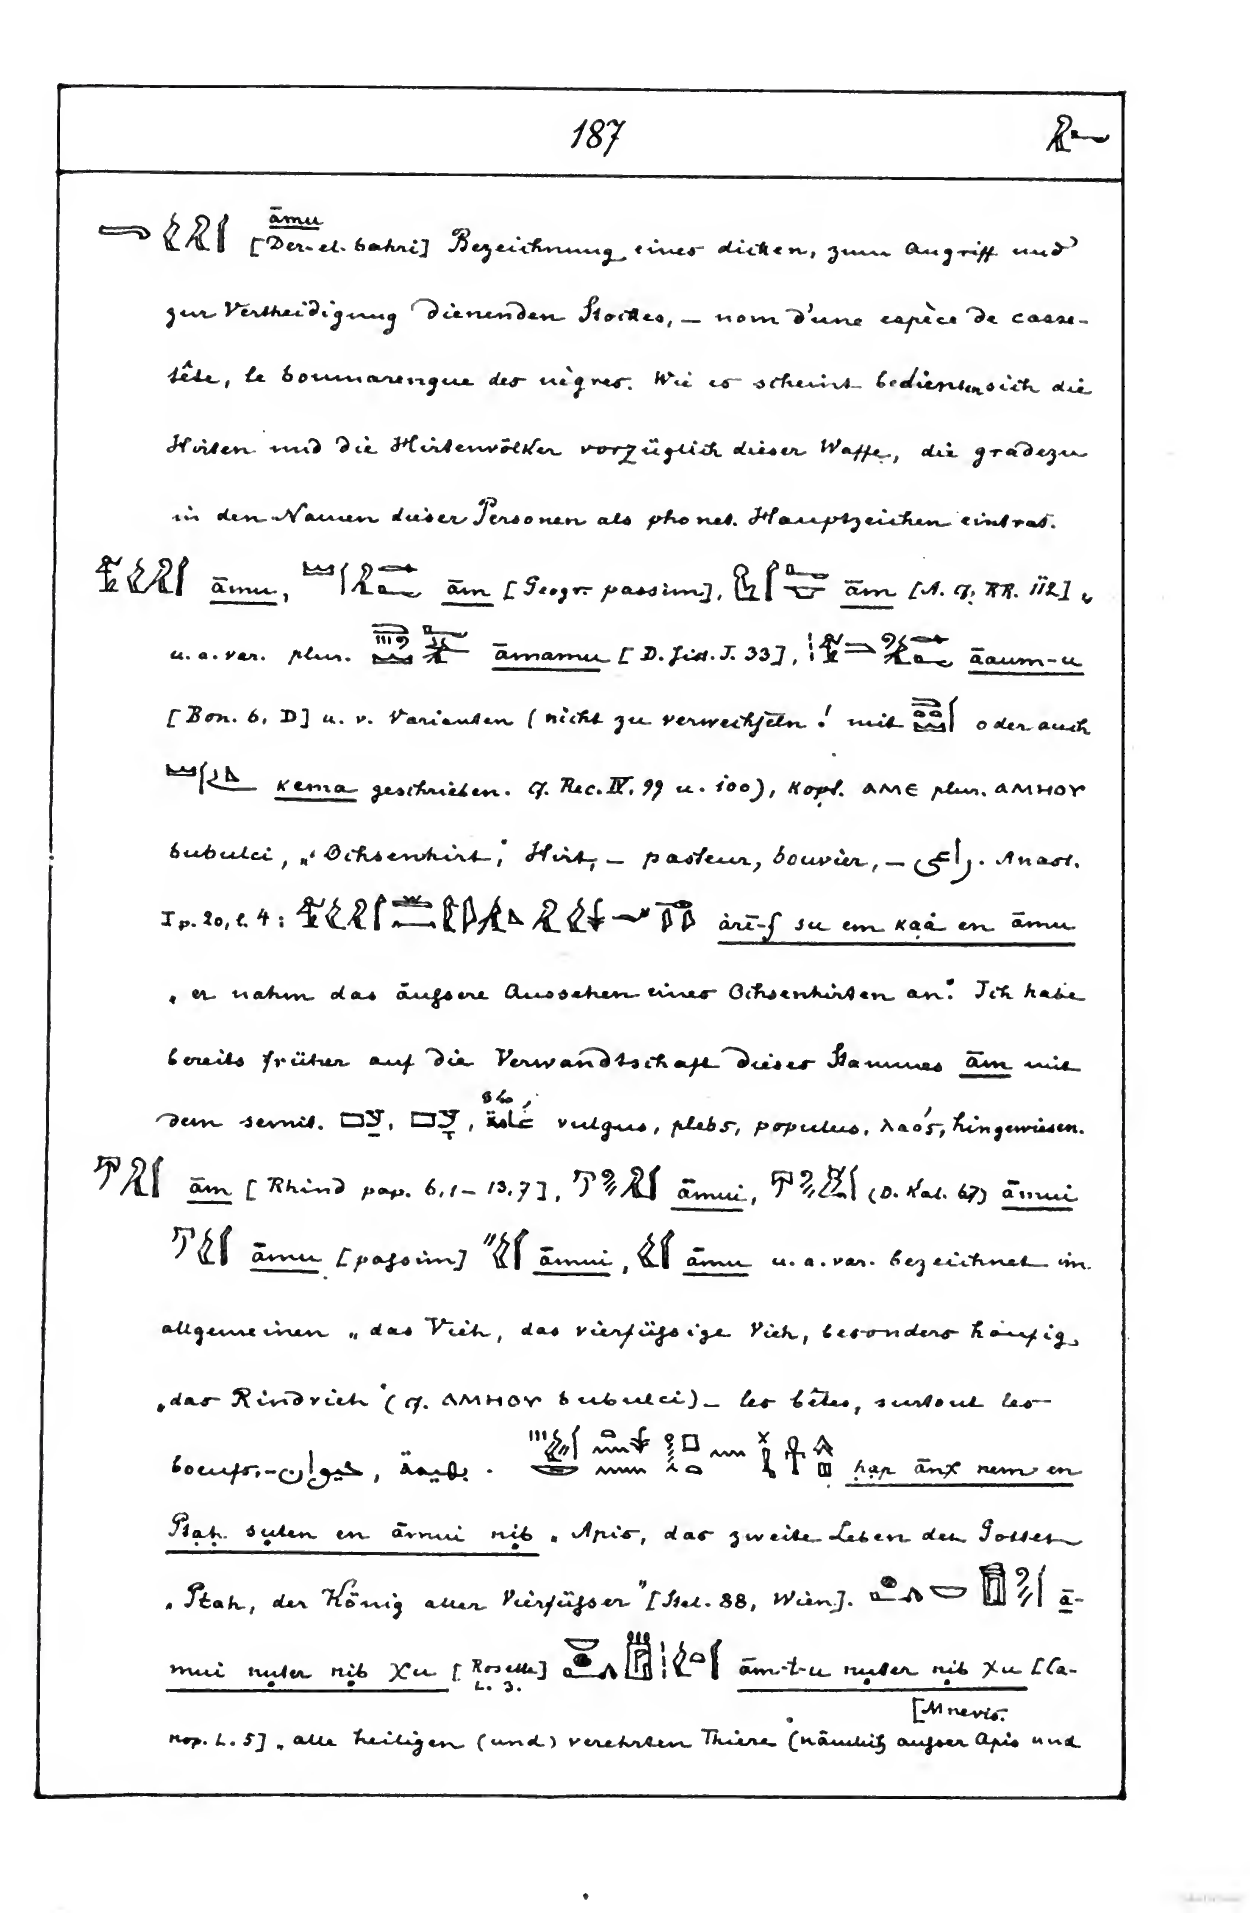 187
āmu
[Der-el-bahri] Bezeichnung eines dicken, zum Angriff und
zur Vertheidigung dienenden Stockes, — nom d'une espèce de casse-
tête, le boumarengue des nègres. Wie es scheint bedienten sich die
Hirten und die Hirtenvölker vorzüglich dieser Waffe, die gradezu
in den Namen dieser Personen als phonet. Hauptzeichen eintrat.
āmu, ām [Geogr. passim], ām [A. q. RR. ] ,
u. a. var. plur. āmamu [D. I. 33], āaum-u
[Bon. 6, D] u. v. Varianten (nicht zu verwechseln! mit oder auch
kema geschrieben. cf. Rec. IV. 99 u. 100), Kopt. ⲁⲙⲉ plur. ⲁⲙⲏⲟⲩ
bubulci, „Ochsenhirt", Hirt, — pasteur, bouvier, — راعى. Anast.
I p. 20, l. 4: ȧrī-f su em ḳaȧ en āmu
„er nahm das äußere Aussehen eines Ochsenhirten an." Ich habe
bereits früher auf die Verwandtschaft dieses Stammes ām mit
dem semit. עַם, עָם, عامّة vulgus, plebs, populus, λαός, hingewiesen.
ām [Rhind pap. 6,1 — 13,7], āmui, (D. Kal. 67) āmui
āmu [passim] āmui, āmu u. a. var. bezeichnet im
allgemeinen „das Vieh, das vierfüßige Vieh, besonders häufig
„das Rindvieh" (cf. ⲁⲙⲏⲟⲩ bubulci) — les bêtes, surtout les
boeufs, — حيوان, بهيمة. ḥap ānχ nem en
Ptaḥ suten en āmui nib „Apis, das zweite Leben des Gottes
„Ptah, der König aller Vierfüßer" [Stel. 88, Wien]. ā-
mui nuter nib χu [Rosette L. 3.] ām-t-u nuter nib χu [Ca-
nop. L. 5] „alle heiligen (und) verehrten Thiere" (nämlich außer Apis und
[Mnevis.